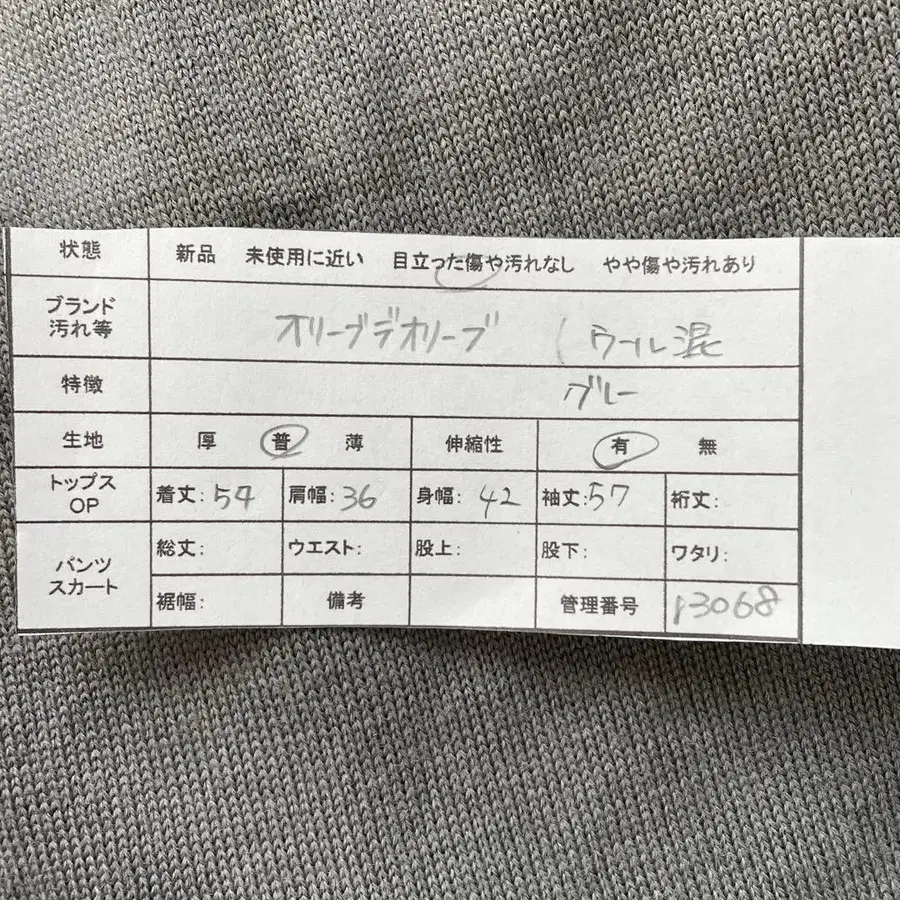 状態 新品 未使用に近い 目立った傷や汚れなし やや傷や汚れあり
ブランド
汚れ等 オリーブデオリーブ (ウール混
特徴 グレー
生地 厚 普 薄 伸縮性 有 無
トップス
OP 着丈:54 肩幅:36 身幅:42 袖丈:57 裄丈:
パンツ
スカート 総丈: ウエスト: 股上: 股下: ワタリ:
裾幅: 備考 管理番号 13068